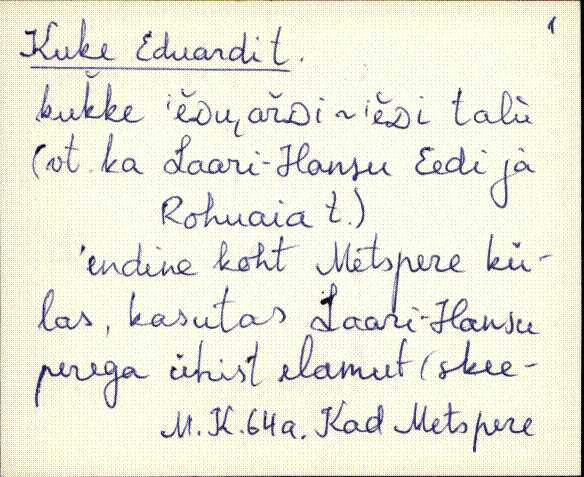 1
Kuke Eduardi t.
kuk̆ke 'ĕDu̯ar̆Di ~ 'ĕDi talù
(vt. ka Laari-Hansu Eedi ja
Rohuaia t.)
'endine koht Metspere kü-
las, kasutas Laari-Hansu
perega ühist elamut (skee-
M.K. 64a. Kad Metspere